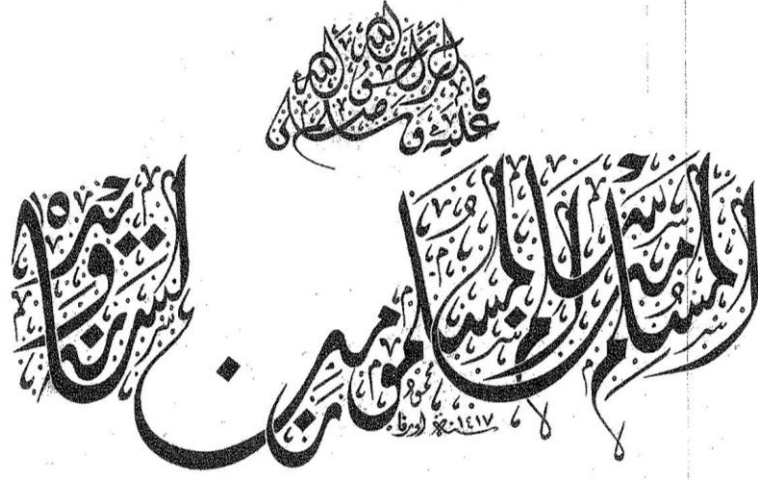 قال رسول الله صلى الله عليه وسلم
المسلم من سلم المسلمون من لسانه ويده
محمود
سنة ١٤١٧ اورفه